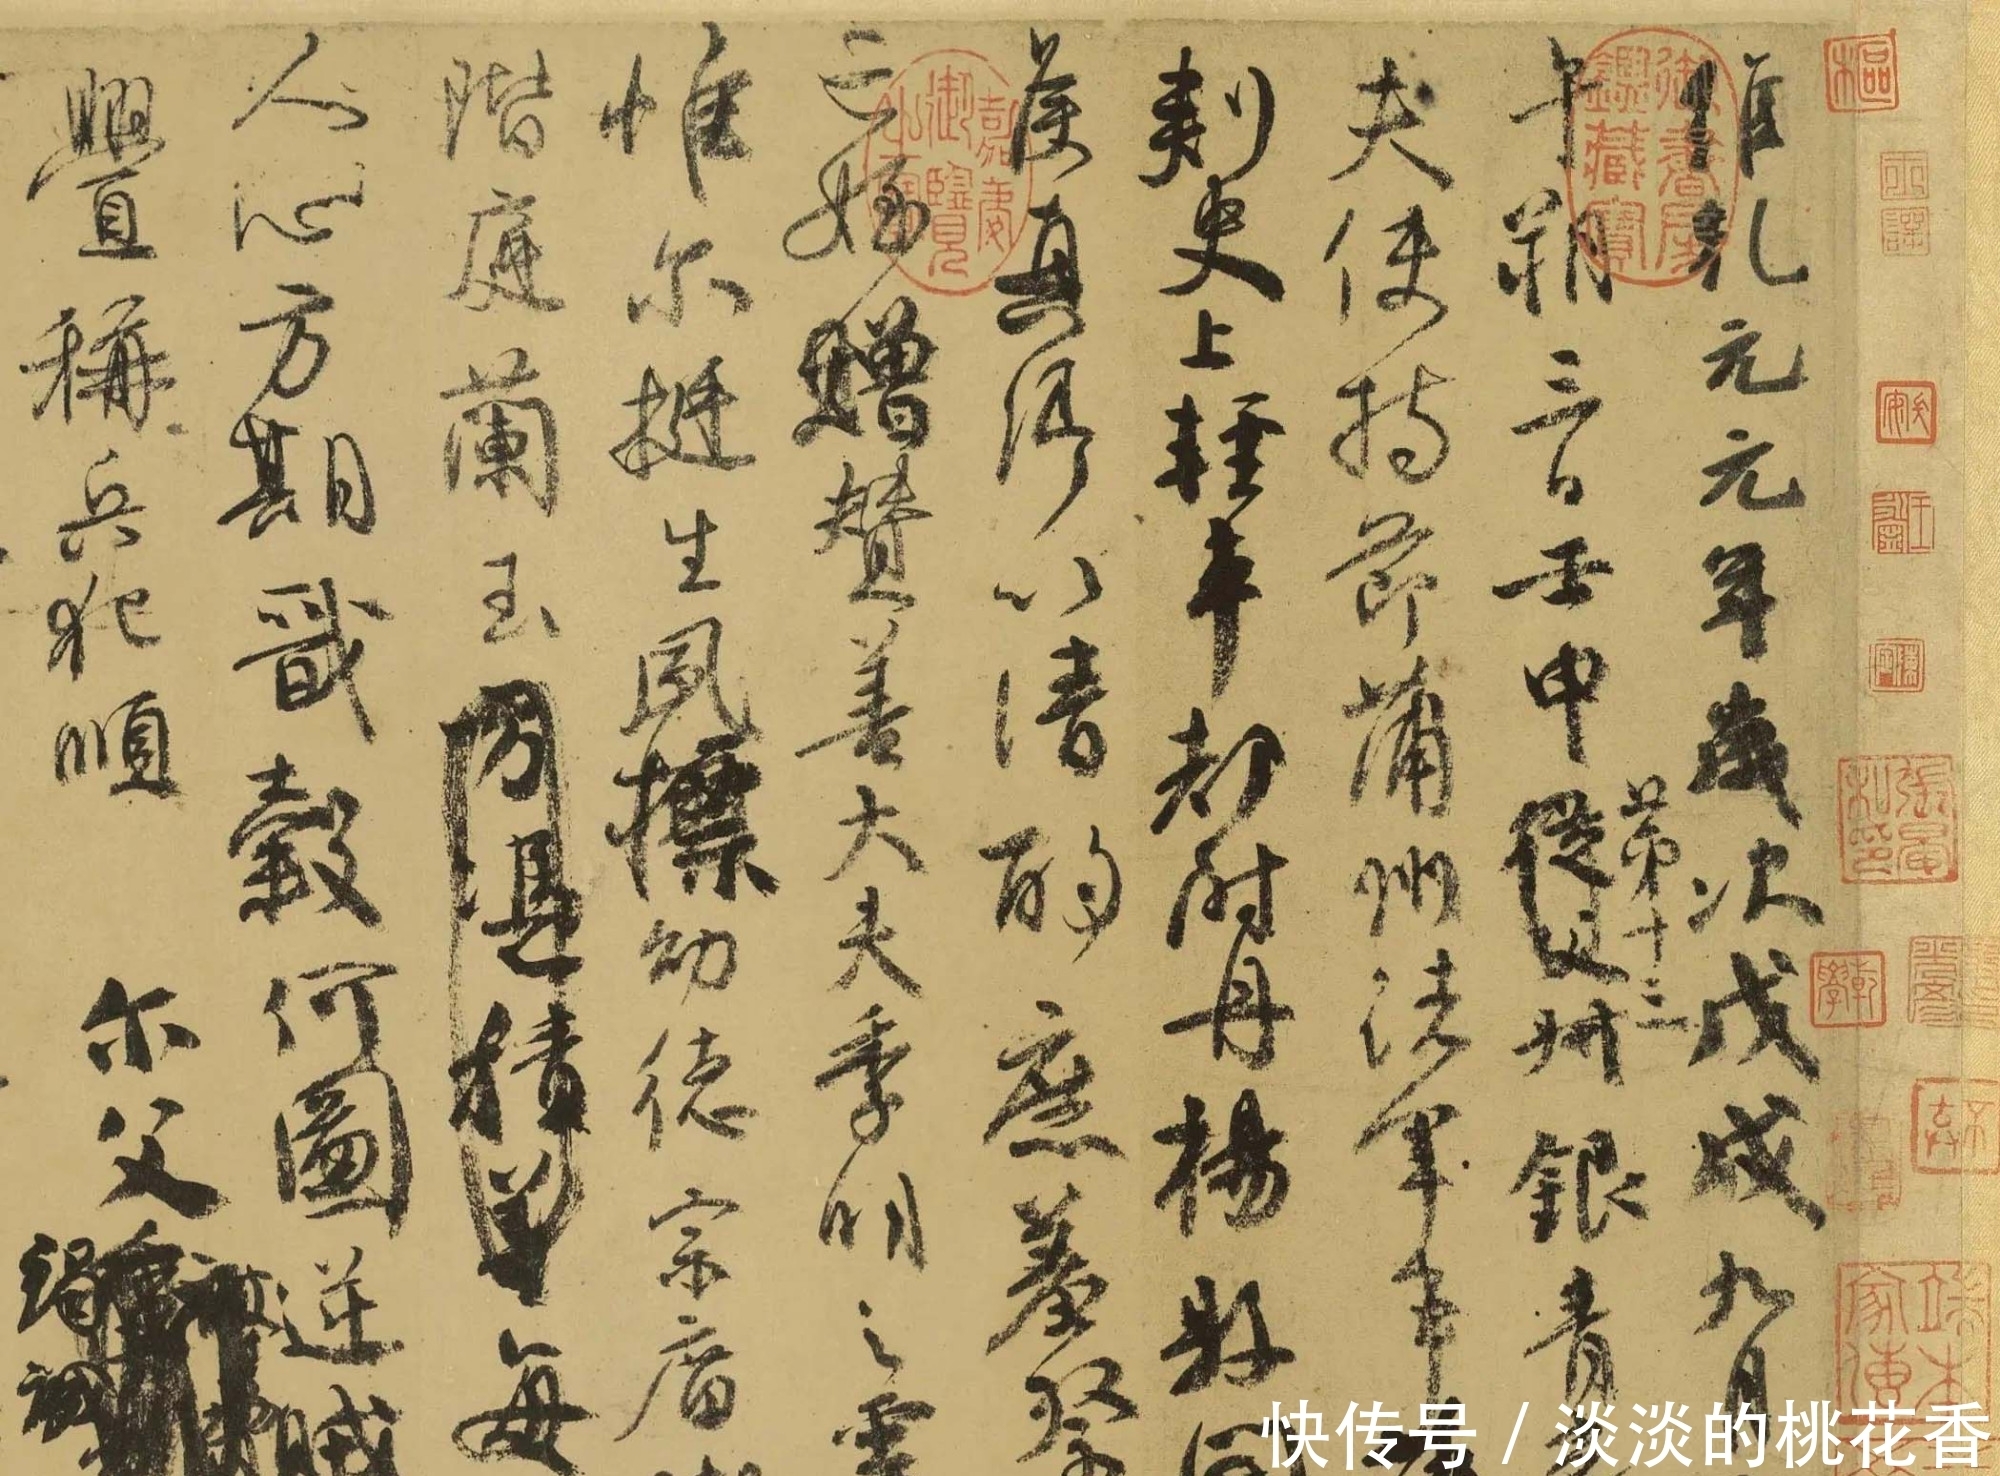 維乾元元年歲次戊戌九月
午朔三日壬申第十三從父銀青
夫使持節蒲州諸軍事
刺史上輕車都尉丹楊縣開
侯真卿以清酌庶羞祭
亡姪贈贊善大夫季明之靈
惟爾挺生夙標幼德宗廟
階庭蘭玉每
人心方期戩穀何圖逆賊
舋稱兵犯順爾父竭誠
快传号 / 淡淡的桃花香